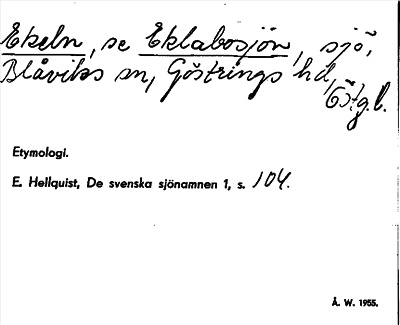 Ekeln, se Eklabosjön, sjö,
Blåviks sn, Göstrings hd,
Östg.l.
Etymologi.
E. Hellquist, De svenska sjönamnen 1, s. 104.
Å. W. 1955.